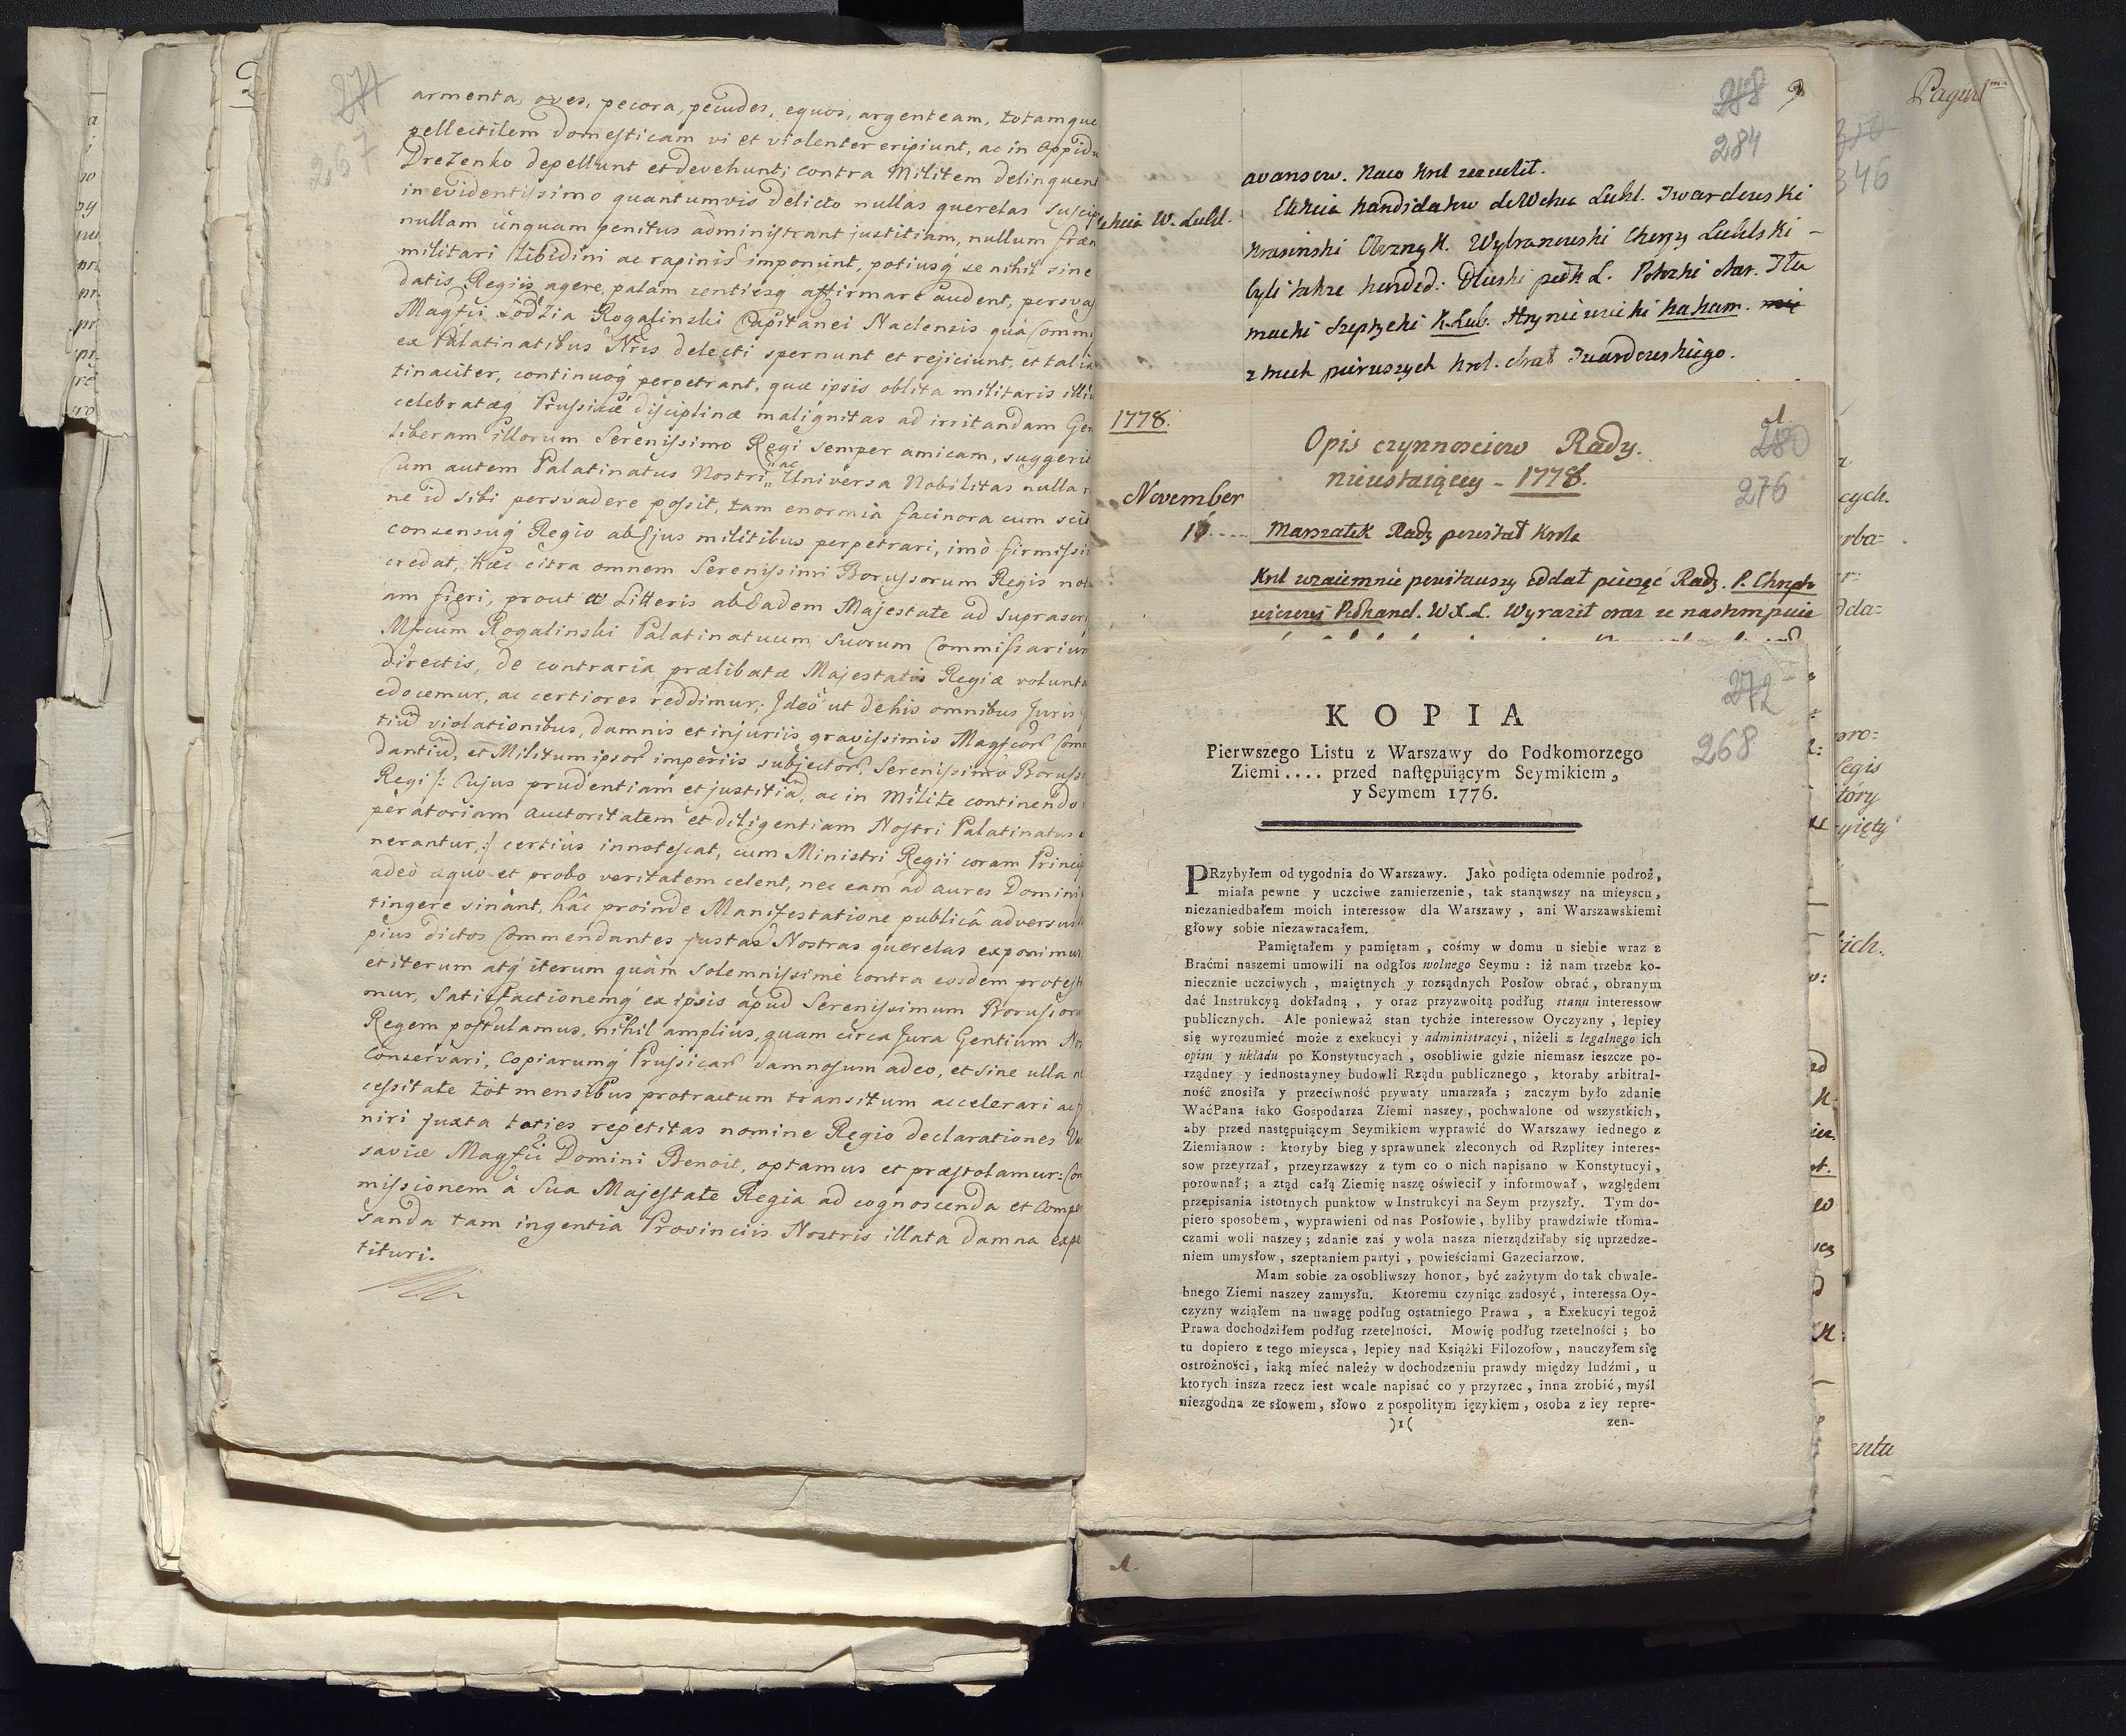 271
267
armenta, oves, pecora, pecudes, equos, argenteam, totamque
pellectilem domesticam vi et violenter eripiunt, ac in Oppidu
Drezenko depellunt et devehunt; contra Militem delinquent
in evidentissimo quantumvis delicto nullas querelas suscip
nullam unquam penitus administrant justitiam, nullum fræn
militari libidini ac rapinis imponunt, potiusq́ se nihil sine
datis Regiis agere, palam zentiesq affirmare audent, persva
Magfci Łodzia Rogalinski Capitanei Naclensis quà Commi
ex Palatinatibus Nris delecti spernunt et rejiciunt, et talia
tinaciter, continuoq́ perpetrant, quæ ipsis oblita militaris illiu
celebratæq́ Prussicæ disciplinæ malignitas ad irritandam Gen
liberam illorum Serenissimo Regi semper amicam, suggerit
Cum autem Palatinatus Nostri, ac Universa Nobilitas nulla r
ne id sibi persvadere possit, tam enormia facinora cum sci
consensuq́ Regio ab Ejus militibus perpetrari, imò firmissi
credat, hæc citra omnem Serenissimi Borussorum Regis not
am fieri, prout ex Litteris ab Eadem Majestate ad suprascri
Mfcum Rogalinski Palatinatuum suorum Commissarium
directis, de contraria prælibatæ Majestatis Regiæ volunta
edocemur, ac certiores reddimur; Ideò ut de his omnibus Juris
tiũ violationibus, damnis et injuriis gravissimis Magfcor Com
dantiũ, et Militum ipsor imperiis subjector, Serenissimo Boruss
Regi /: Cujus prudentiam et justitiã, ac in Milite continendo
peratoriam Auctoritatem et diligentiam Nostri Palatinatus
nerantur, :/ certius innotescat, cum Ministri Regii coram Princip
adeò æquo et probo veritatem celent, nec eam ad aures Domini
tingere sinant, hâc proinde Manifestatione publicâ adversus
pius dictos Commendantes justas Nostras querelas exponimus
et iterum atq́ iterum quàm solemnissimè contra eosdem protest
mur, Satisfactionemq́ ex ipsis apud Serenissimum Borussoru
Regem postulamus, nihil amplius, quam circa Jura Gentium No
Conservari, Copiarumq́ Prussicar damnosum adeo, et sine ulla n
cessitate tot mensibus protractum transitum accelerari ac f
niri juxta toties repetitas nomine Regio declarationes Va
saviæ Magfci Domini Benoit, optamus et præstolamur: Com
missionem à Sua Majestate Regia ad cognoscenda et Compe
sanda tam ingentia Provinciis Nostris illata damna expe
tituri.
288
284
avansow. Naco Krol zezwolił.
Elekcia W. Lubl.
Elekcia Kandidatow do Wctwa Lubl. Twardowski
Krasinski Obozny K. Wybranowski Chorąży Lubelski -
byli także
macki Szeptycki K. Lub. Hryniewiecki
z tych pierwszych Krol. obrał Twardowskiego.
1778.
Opis czynnosciow Rady.
nieustaiącey - 1778.
280
276
November
10
Marszałek Rady powitał Krola
Krol wzaiemnie powitawszy oddał pieczęć Rady. P. Chrepto
wiczowi Podkancl. W.X.L. Wyraził oraz ze nastompienie
272
268
K O P I A
Pierwszego Listu z Warszawy do Podkomorzego
Ziemi .... przed następuiącym Seymikiem,
y Seymem 1776.
PRzybyłem od tygodnia do Warszawy. Jako podięta odemnie podroż,
miała pewne y uczciwe zamierzenie, tak stanąwszy na mieyscu,
niezaniedbałem moich interessow dla Warszawy, ani Warszawskiemi
głowy sobie niezawracałem.
Pamiętałem y pamiętam, cośmy w domu u siebie wraz z
Braćmi naszemi umowili na odgłos wolnego Seymu: iż nam trzeba ko-
niecznie uczciwych, maiętnych y rozsądnych Posłow obrać, obranym
dać Instrukcyą dokładną, y oraz przyzwoitą podług stanu interessow
publicznych. Ale ponieważ stan tychże interessow Oyczyzny, lepiey
się wyrozumieć może z exekucyi y administracyi, niżeli z legalnego ich
opisu y układu po Konstytucyach, osobliwie gdzie niemasz ieszcze po-
rządney y iednostayney budowli Rządu publicznego, ktoraby arbitral-
ność znosiła y przeciwność prywaty umarzała; zaczym było zdanie
WaćPana iako Gospodarza Ziemi naszey, pochwalone od wszystkich,
aby przed następuiącym Seymikiem wyprawić do Warszawy iednego z
Ziemianow: ktoryby bieg y sprawunek zleconych od Rzplitey interes-
sow przeyrzał, przeyrzawszy z tym co o nich napisano w Konstytucyi,
porownał; a ztąd całą Ziemię naszę oświecił y informował, względem
przepisania istotnych punktow w Instrukcyi na Seym przyszły. Tym do-
piero sposobem, wyprawieni od nas Posłowie, byliby prawdziwie tłoma-
czami woli naszey; zdanie zaś y wola nasza nierządziłaby się uprzedze-
niem umysłow, szeptaniem partyi, powieściami Gazeciarzow.
Mam sobie za osobliwszy honor, być zażytym do tak chwale-
bnego Ziemi naszey zamysłu. Ktoremu czyniąc zadosyć, interessa Oy-
czyzny wziąłem na uwagę podług ostatniego Prawa, a Exekucyi tegoż
Prawa dochodziłem podług rzetelności. Mowię podług rzetelności; bo
tu dopiero z tego mieysca, lepiey nad Książki Filozofow, nauczyłem się
ostrożności, iaką mieć należy w dochodzeniu prawdy między ludźmi, u
ktorych insza rzecz iest wcale napisać co y przyrzec, inna zrobić, myśl
niezgodna ze słowem, słowo z pospolitym ięzykiem, osoba z iey repre-
)1( zen-
346